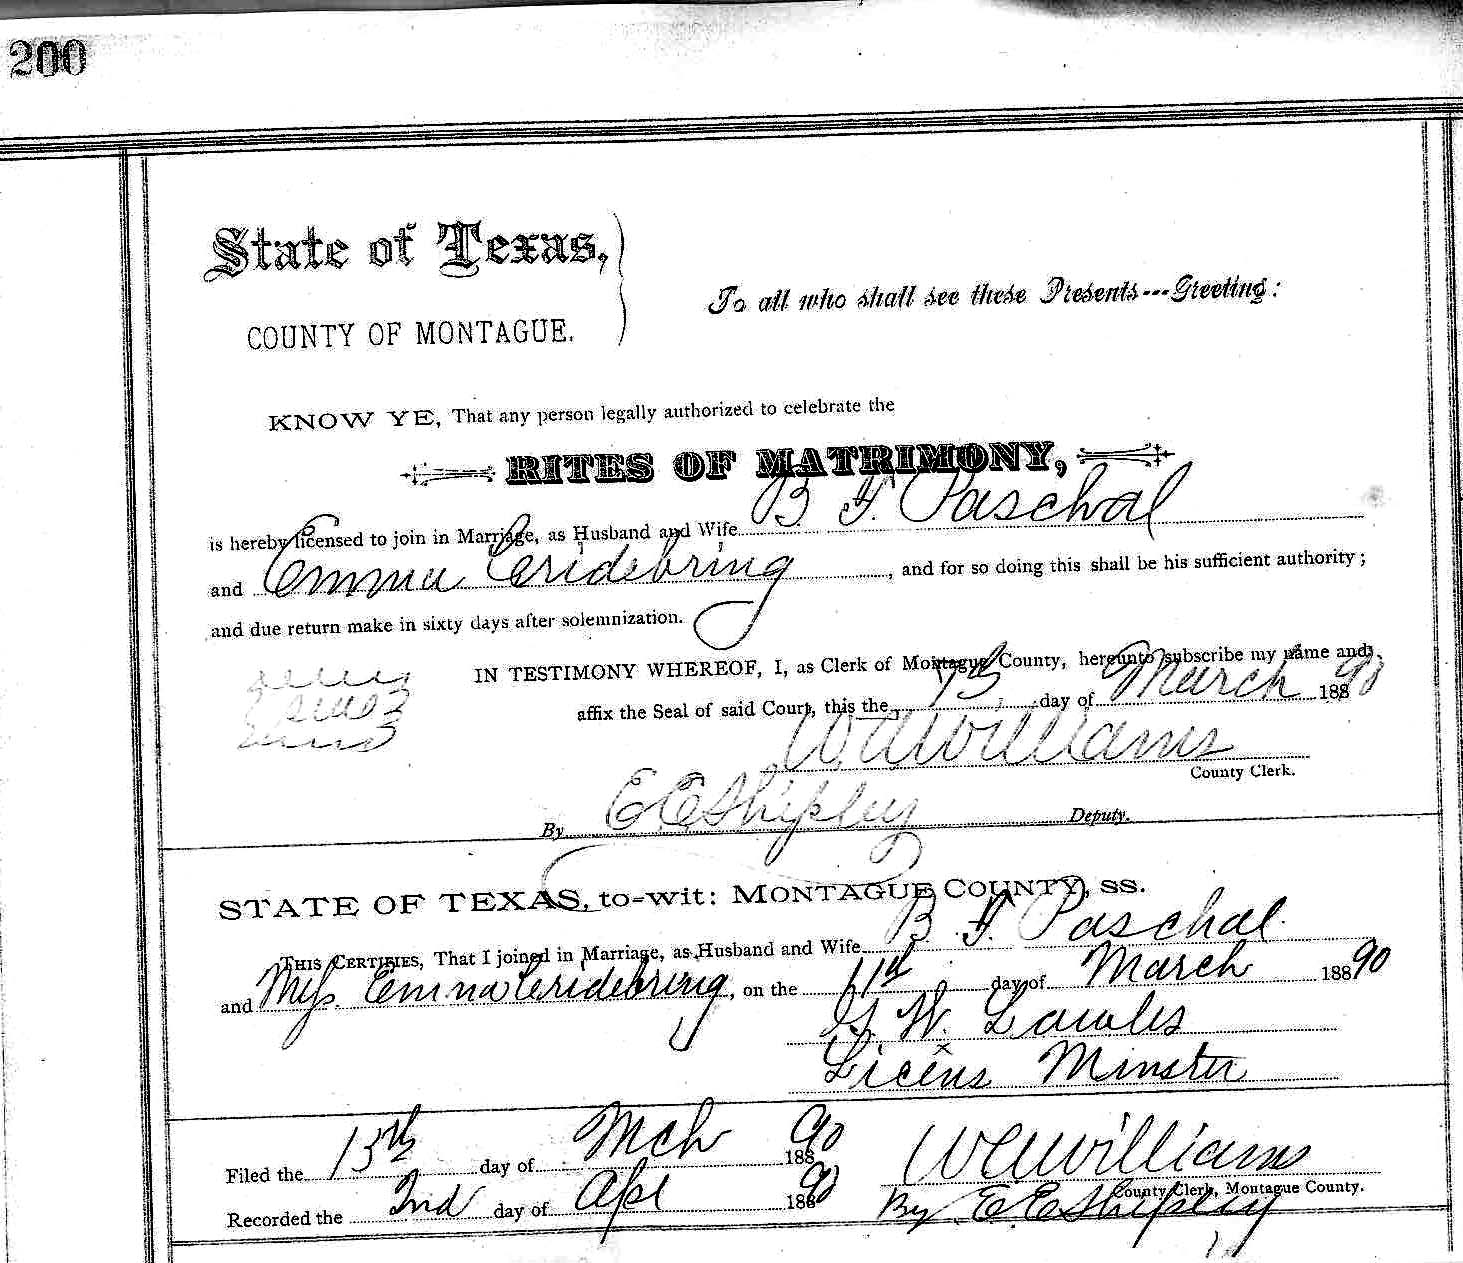 200
State of Texas,
COUNTY OF MONTAGUE.
To all who shall see these Presents---Greeting:
KNOW YE, That any person legally authorized to celebrate the
RITES OF MATRIMONY,
is hereby licensed to join in Marriage, as Husband and Wife B. F. Paschal
and Emma Eridebring, and for so doing this shall be his sufficient authority;
and due return make in sixty days after solemnization.
IN TESTIMONY WHEREOF, I, as Clerk of Montague County, hereunto subscribe my name and
affix the Seal of said Court, this the day of March 188 90
W A Williams
County Clerk.
By E E Shipley Deputy.
STATE OF TEXAS, to-wit: MONTAGUE COUNTY, ss.
THIS CERTIFIES, That I joined in Marriage, as Husband and Wife B. F. Paschal
and Miss. Emma Eridebring, on the 11th day of March 188 90
G. W. Lawles
Licens Minster
Filed the 13th day of Mch 188 90 W A Williams
County Clerk, Montague County.
Recorded the 2nd day of Apl 188 90 By E E Shipley